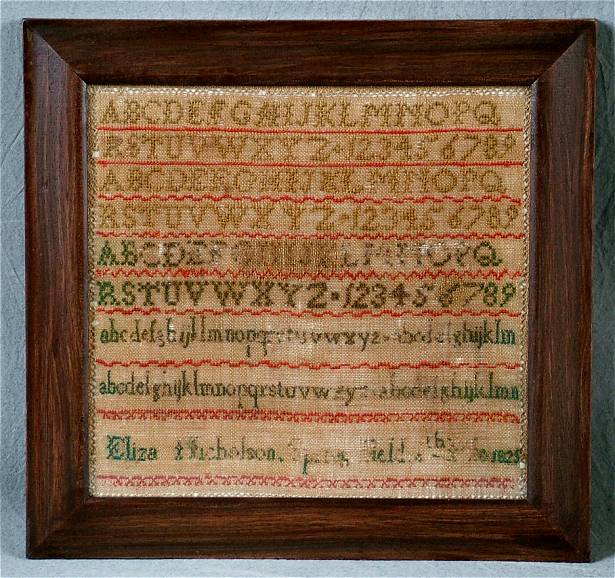 ABCDEFGHIJKLMNOPQ
RSTUVWXYZ·123456789
ABCDEFGHIJKLMNOPQ
RSTUVWXYZ·123456789
ABCDEFGHIJKLMNOPQ
RSTUVWXYZ·123456789
abcdefghijklmnopqrstuvwxyz·abcdefghijklm
abcdefghijklmnopqrstuvwxyz·abcdefghijklmn
Eliza Nicholson, Spring Field